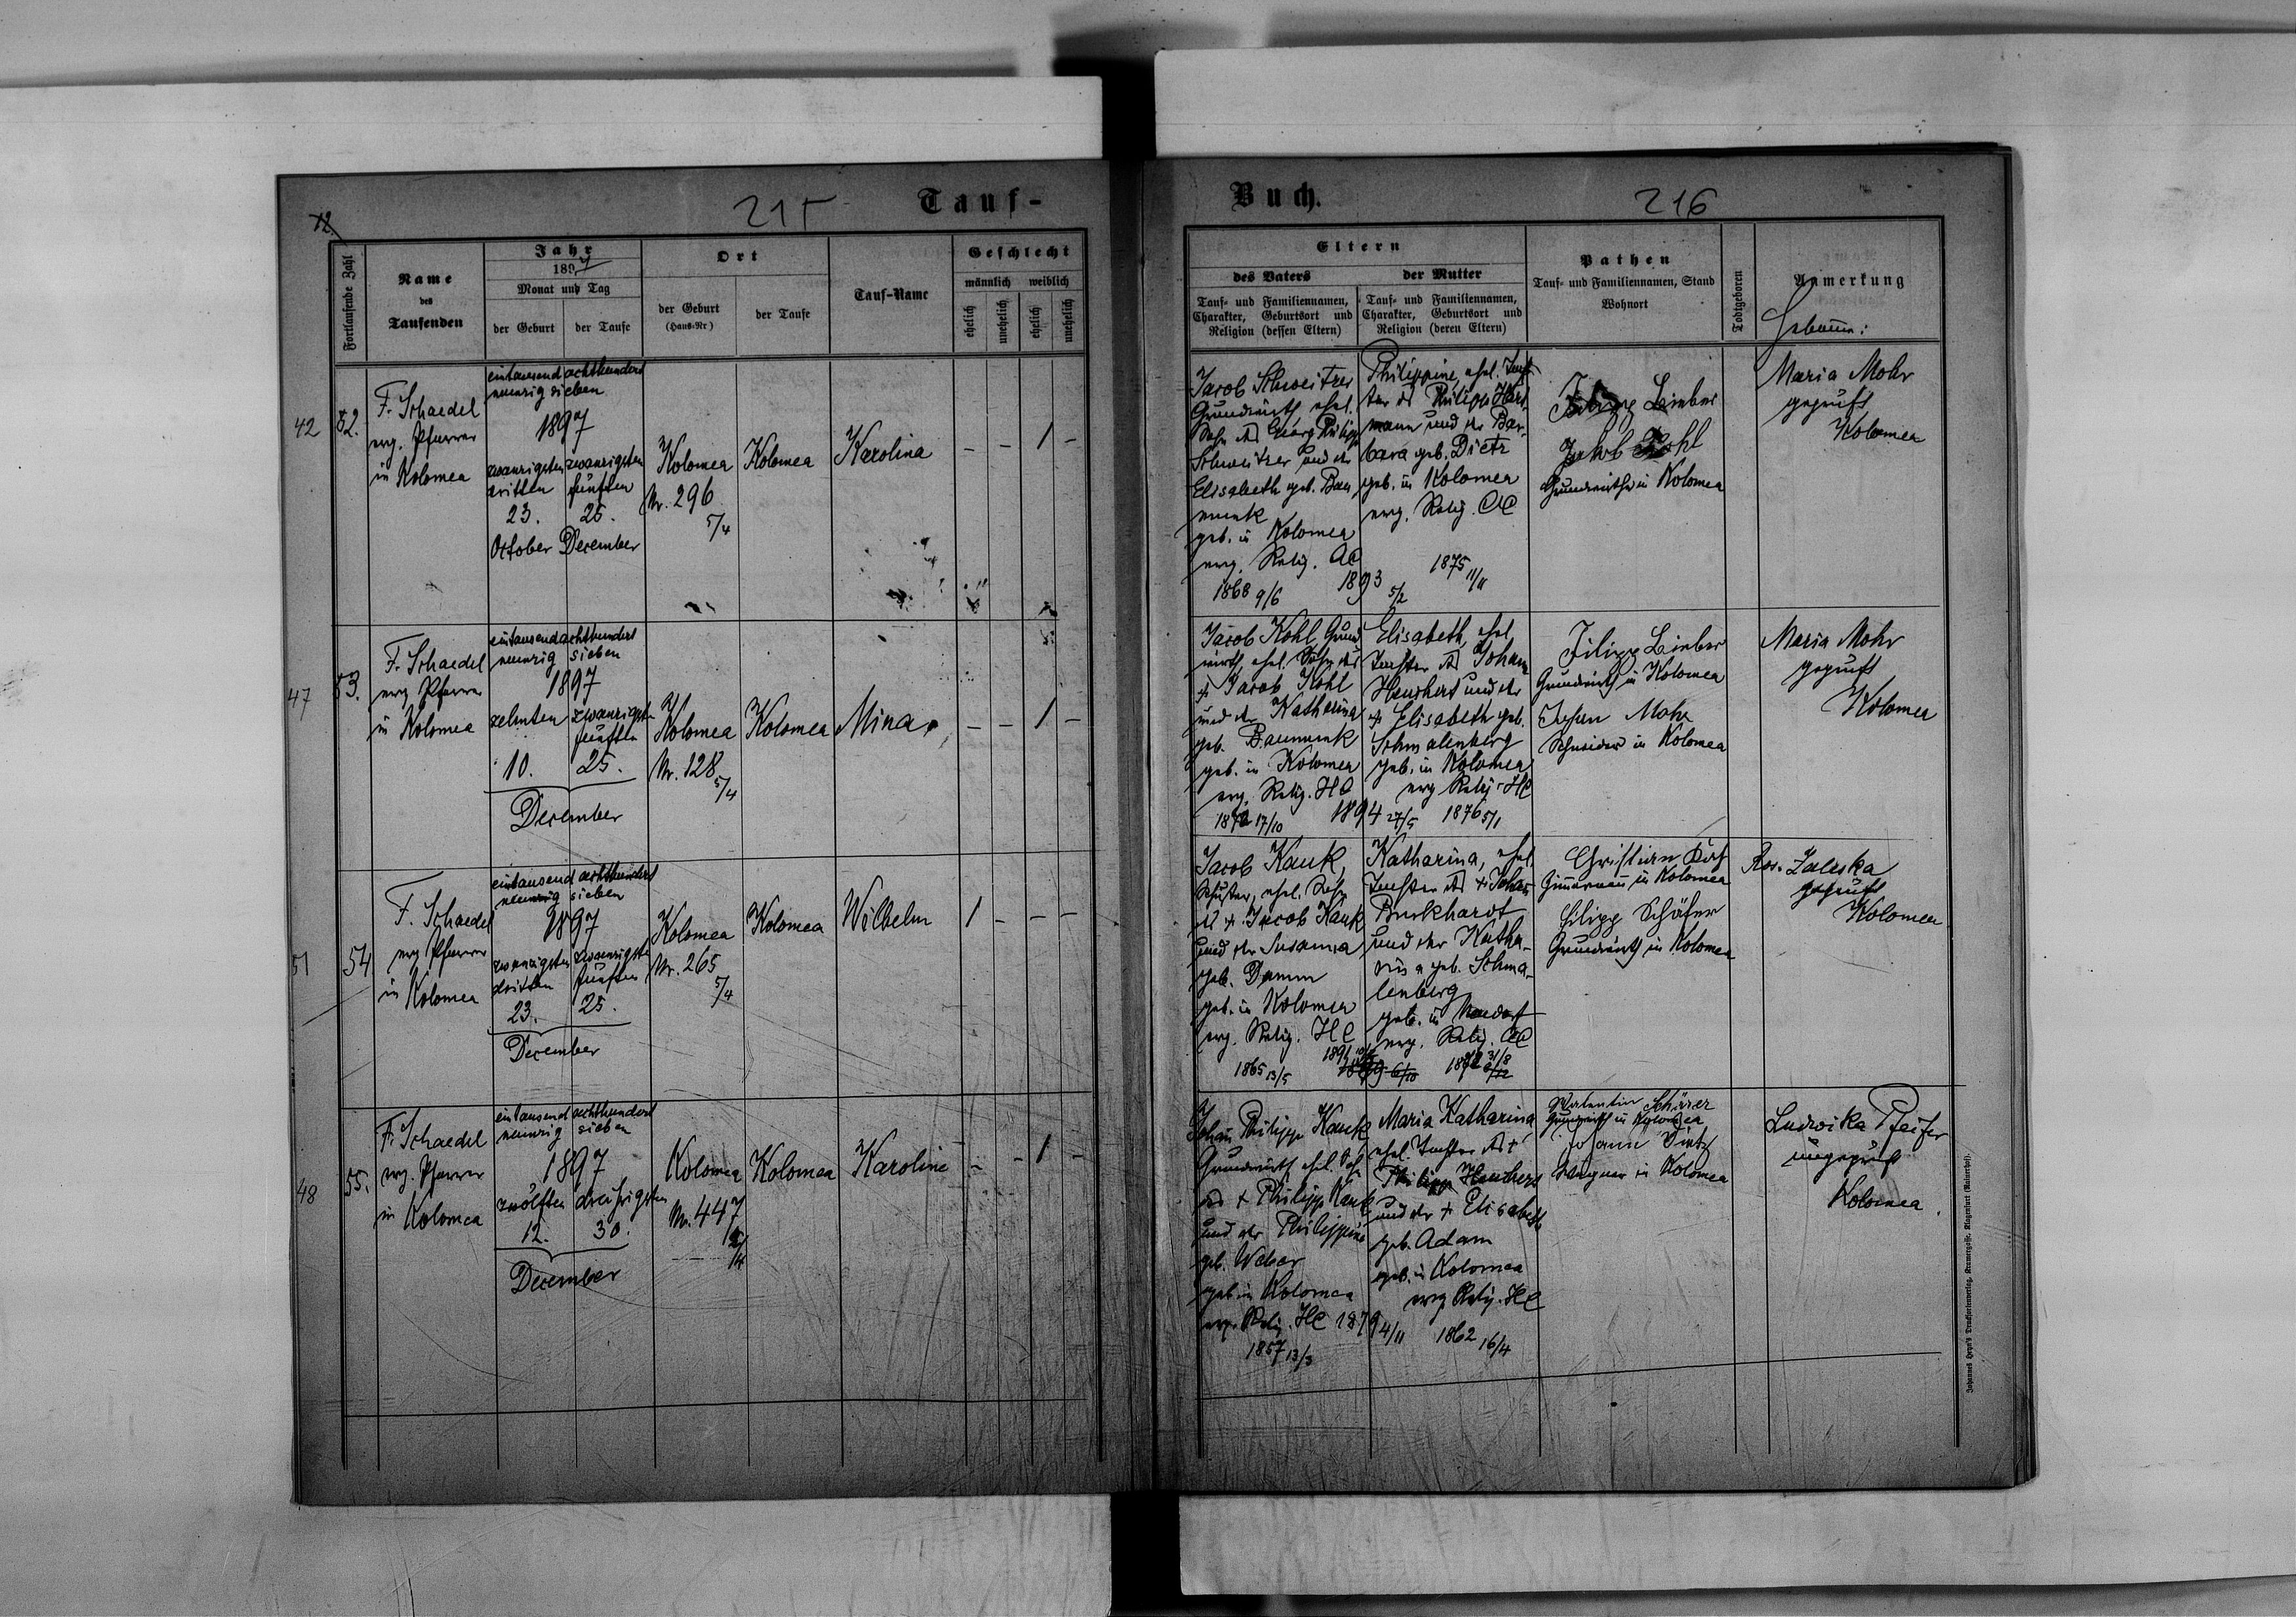 12.
215
Tauf-
Fortlaufende Zahl
Name
des
Taufenden
Jahr
1897
Monat und Tag
der Geburt
der Taufe
Ort
der Geburt
(Haus-Nr)
der Taufe
Tauf-Name
Geschlecht
männlich
weiblich
ehelich
unehelich
ehelich
unehelich
42
52.
F. Schaedel
evg. Pfarrer
in Kolomea
eintausend achthundert
neunzig sieben
1897
zwanzigsten zwanzigsten
dritten fünften
23. 25.
October December
Kolomea
Nr. 296
5/4
Kolomea
Karolina
- - 1 -
47
53.
F. Schaedel
evg Pfarrer
in Kolomea
eintausend achthundert
neunzig sieben
1897
zehnten zwanzigst
fünften
10. 25.
December
Kolomea
Nr. 128
5/4
Kolomea
Mina
- - 1 -
51
54
F. Schaedel
evg Pfarrer
in Kolomea
eintausend achthundert
neunzig sieben
1897
zwanzigsten zwanzigsten
dritten fünften
23. 25.
December
Kolomea
Nr. 265
5/4
Kolomea
Wilhelm
1 - - -
48
55.
F. Schaedel
evg. Pfarrer
in Kolomea
eintausend achthundert
neunzig sieben
1897
zwölften dreißigsten
12. 30.
December
Kolomea
Nr. 447
Kolomea
Karoline
- - 1 -
Buch.
216
Eltern
des Vaters
der Mutter
Tauf- und Familiennamen,
Charakter, Geburtsort und
Religion (dessen Eltern)
Tauf- und Familiennamen,
Charakter, Geburtsort und
Religion (deren Eltern)
Pathen
Tauf- und Familiennamen, Stand
Wohnort
Todtgeboren
Anmerkung
Hebamme:
Jacob Schweitzer
Grundwirth, ehel.
Sohn des Georg Philipp
Schweitzer und der
Elisabeth geb. Bau
geb. in Kolomea
evg. Relig. AC
1868 9/6
1893 5/2
Philippine, ehel. Toch-
ter des Philipp Hart
mann und der Bar-
bara geb. Dietz
geb. in Kolomea
evg. Relig. AC
1875 11/11
Filipp Linber
Jakob Kohl
Grundwirthe in Kolomea
Maria Mohr
geprüft
Kolomea
Jacob Kohl Grund
wirth, ehel. Sohn des
+ Jacob Kohl
und der Katharina
geb. Baumunk
geb. in Kolomea
evg. Relig. HC
17/10
1894 27/5
Elisabeth, ehel
Tochter des Johann
und der
+ Elisabeth geb.
Schmalenberg
geb. in Kolomea
evg Relig. HC
1876 5/1
Filipp Linber
Grundwirth in Kolomea
Johan Mohr
Schneider in Kolomea
Maria Mohr
geprüft
Kolomea
Jacob Kauk,
Schuster, ehel. Sohn
des + Jacob Kauk
und der Susanna
geb. Damm
geb. in Kolomea
evg. Relig. HC
1865 13/5
1891
Katharina, ehel
Tochter des + Johan
Burkhardt
und der Katha-
rina geb. Schma-
lenberg
geb. in
evg. Relig. AC
31/8
Christian
in Kolomea
Filipp Schäfer
Grundwirth in Kolomea
Ros. Zaleska
geprüft
Kolomea
Johann Philipp Kauk
Grundwirth ehel. Sohn
des + Philipp Kauk
und der Philippine
geb. Weber
geb. in Kolomea
evg. Relig. HC
1857 13/3
1879 4/11
Maria Katharina,
ehel. Tochter des +
Philipp
und der + Elisabeth
geb. Adam
geb. in Kolomea
evg Relig. HC
1862 16/4
Valentin Schärer
Grundwirth in Kolomea
Johann
Wagner in Kolomea
Ludwika Pfeifer
ungeprüft
Kolomea.